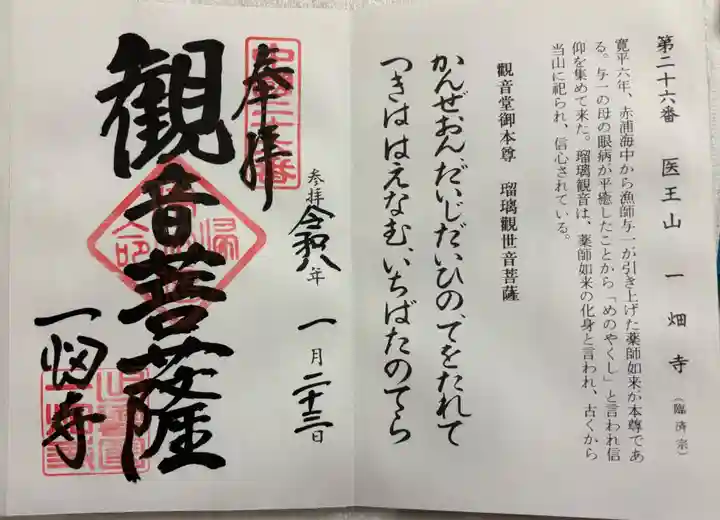 第二十六番　医王山　一畑寺（臨済宗）
寛平六年、赤浦海中から漁師与一が引き上げた薬師如来が本尊であ
る。与一の母の眼病が平癒したことから「めのやくし」と言われ信
仰を集めて来た。瑠璃観音は、薬師如来の化身と言われ、古くから
当山に祀られ、信心されている。
観音堂御本尊　瑠璃觀世音菩薩
かんぜおんだいじだいひの、てをたれて
つきははえなむ、いちばたのてら
参拝 令和八年 一月二十三日
奉拝
観音菩薩
一畑寺